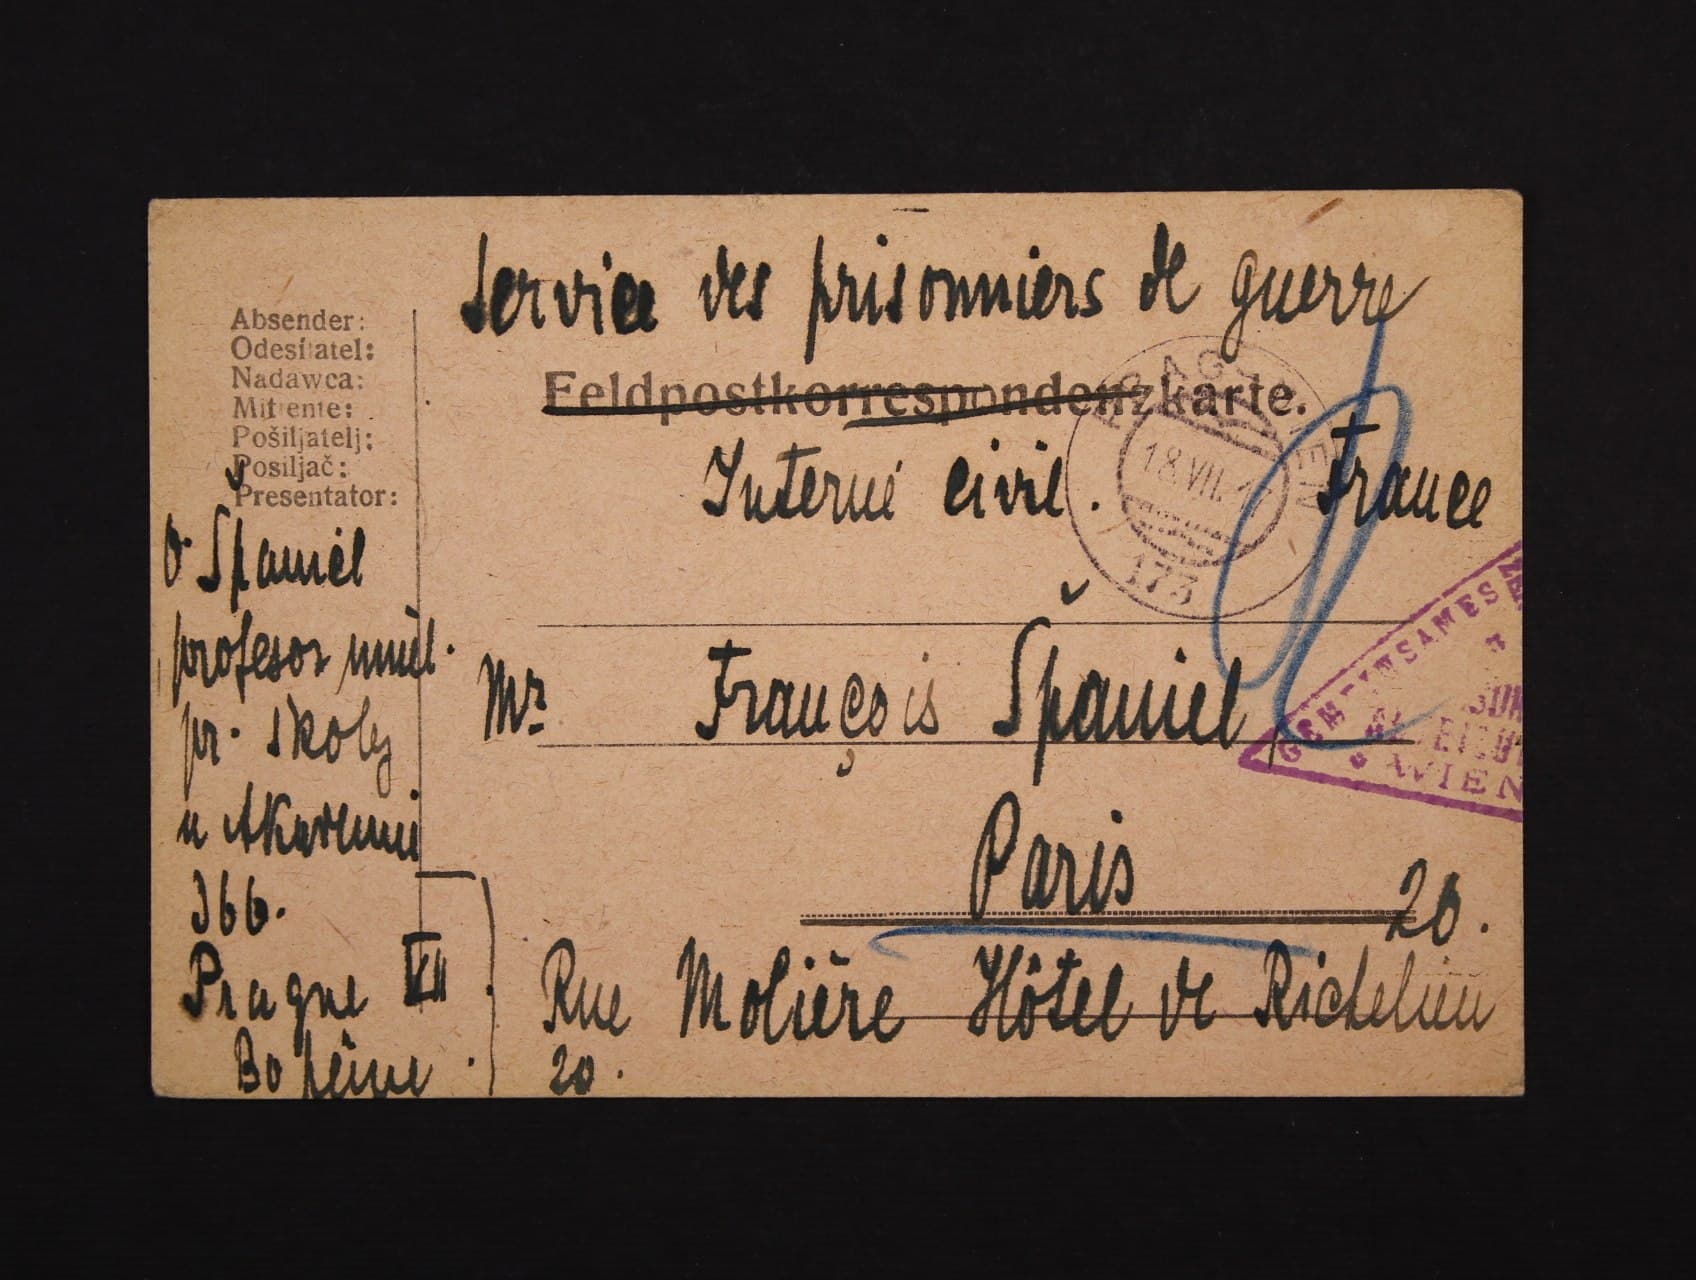 Service des prisonniers de guerre
Feldpostkorrespondenzkarte.
Interné civil. France
Mr François Španiel
Paris
20.
Rue Molière Hôtel de Richelieu
20.
Absender:
Odesílatel:
Nadawca:
Mittente:
Pošiljatelj:
Posiljač:
Presentator:
O. Španiel
profesor uměl.
pr. školy
u Akademie
366.
Prague VII
Bohême
18.VII.1
173
GEMEINSAMES
WIEN